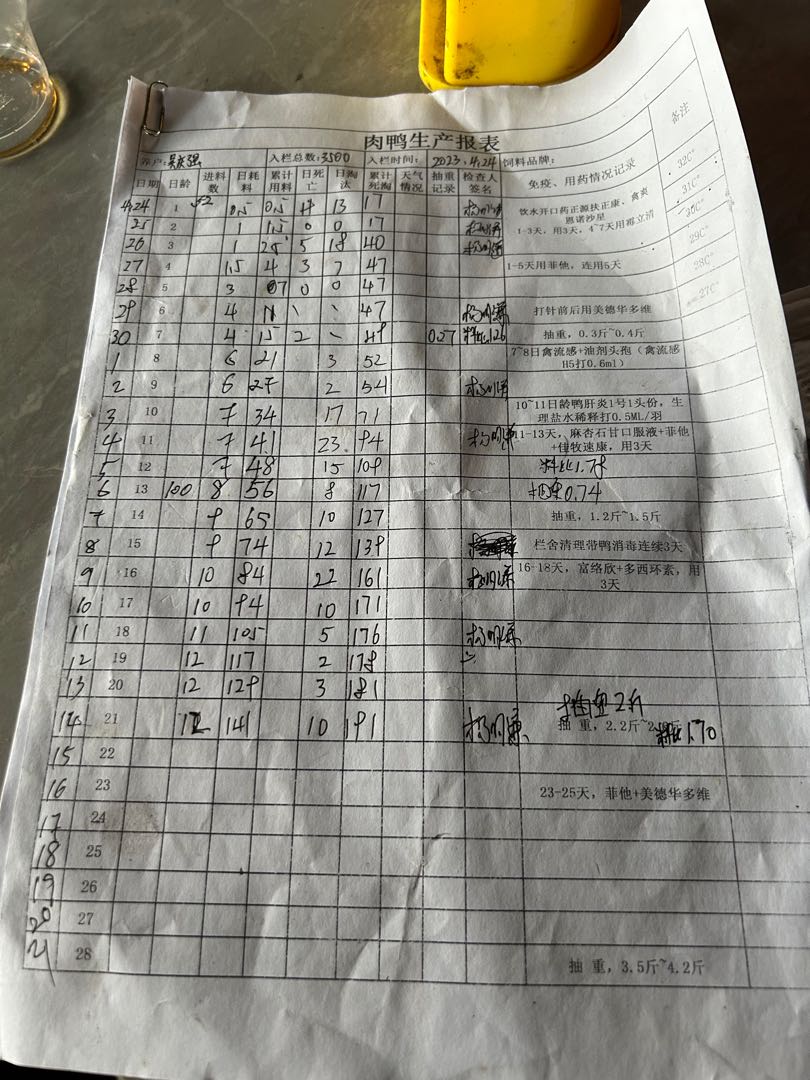 肉鸭生产报表
养户: 入栏总数:3500 入栏时间: 2023.4.24 饲料品牌: 备注
日期 日龄 进料数 日耗料 累计用料 日死亡 日淘汰 累计死淘 天气情况 抽重记录 检查人签名 免疫、用药情况记录
4.24 1 52 0.5 0.5 4 13 17 饮水开口药正源扶正康、禽炎 32C°
恩诺沙星
25 2 1 1.5 0 0 17 1-3天,用3天,4~7天用霉立清 31C°
26 3 1 2.5 5 18 40 30C°
27 4 1.5 4 3 7 47 1-5天用菲他,连用5天 29C°
28 5 3 07 0 0 47 28C°
29 6 4 11 \ \ 47 打针前后用美德华多维 27C°
30 7 4 15 2 \ 49 0.27 料比1.26 抽重,0.3斤~0.4斤
1 8 6 21 3 52 7~8日禽流感+油剂头孢(禽流感
H5打0.6ml)
2 9 6 27 2 54
3 10 7 34 17 71 10~11日龄鸭肝炎1号1头份,生
理盐水稀释打0.5ML/羽
4 11 7 41 23 94 11-13天,麻杏石甘口服液+菲他
+佳牧速康,用3天
5 12 7 48 15 109 料比1.79
6 13 100 8 56 8 117 0.74
7 14 9 65 10 127 抽重,1.2斤~1.5斤
8 15 9 74 12 139 栏舍清理带鸭消毒连续3天
9 16 10 84 22 161 16-18天,富络欣+多西环素,用
3天
10 17 10 94 10 171
11 18 11 105 5 176
12 19 12 117 2 178
13 20 12 129 3 181
2斤
14 21 12 141 10 191 抽 重,2.2斤~ 料比1.70
15 22
16 23 23-25天,菲他+美德华多维
17 24
18 25
19 26
20 27
21 28 抽 重,3.5斤~4.2斤